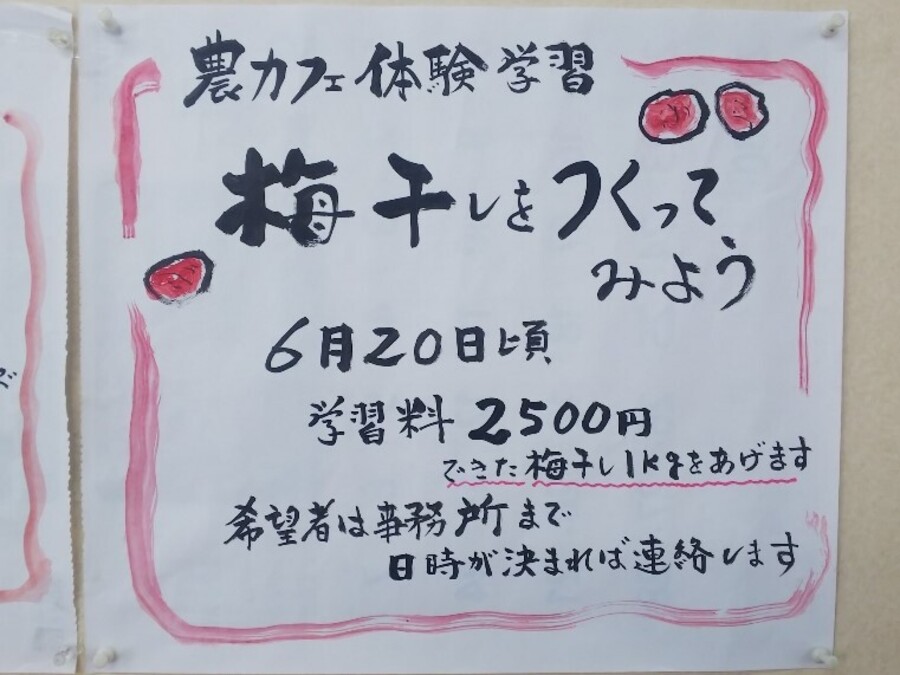 農カフェ体験学習
梅干しをつくって
みよう
6月20日頃
学習料 2500円
できた梅干し1kgをあげます
希望者は事務所まで
日時が決まれば連絡します